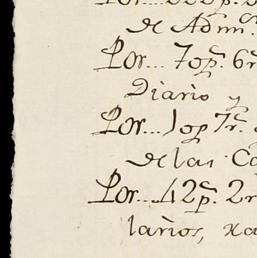 Por... 222 p.
de Admi.
Por... 70 p. 6 r
Diario y
Por... 10 p 7 r.
de las Ca
Por... 42 p. 2 r
larios, xa